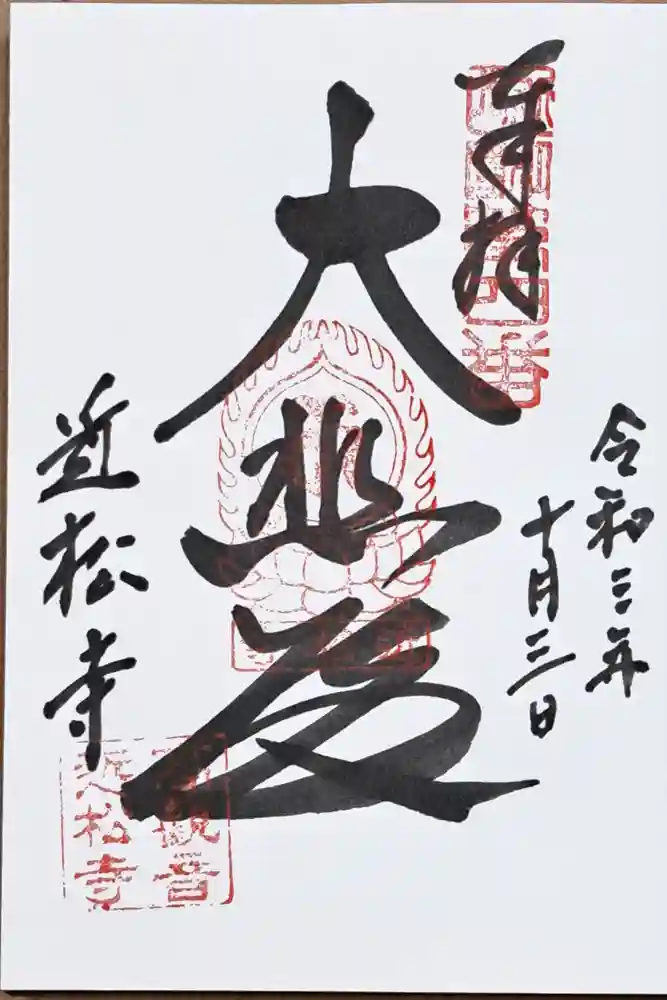 奉拝
令和三年
十月三日
大悲殿
近松寺
高観音
近松寺